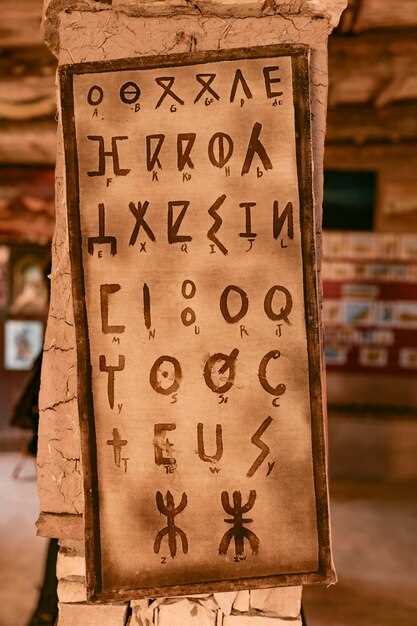 ⴰ ⴱ ⴳ ⴳ ⴷ ⴹ
A B G G D
ⴼ ⴽ ⴽ ⵀ ⵃ
F K K H h
ⵄ ⵅ ⵇ ⵉ ⵊ ⵍ
E X Q I J L
ⵎ ⵏ ⵓ ⵔ ⵕ
M N U R
ⵖ ⵙ ⵚ ⵛ
Y S C
ⵜ ⵟ ⵡ ⵢ
T W Y
ⵣ ⵥ
Z